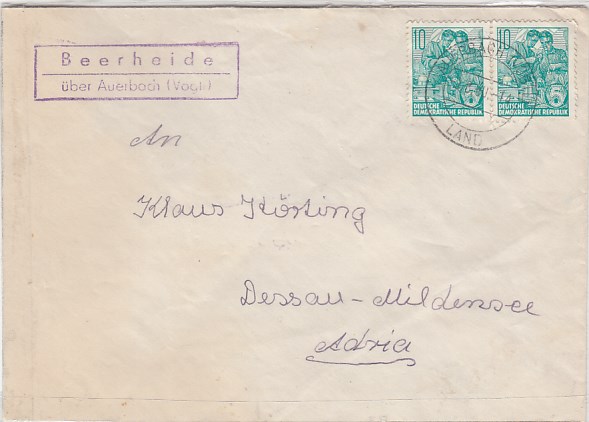 Beerheide
über Auerbach (Vogtl.)
10
10
DEUTSCHE
DEMOKRATISCHE REPUBLIK
DEUTSCHE
DEMOKRATISCHE REPUBLIK
LAND
An
Klaus Körting
Dessau-Mildensee
Adria